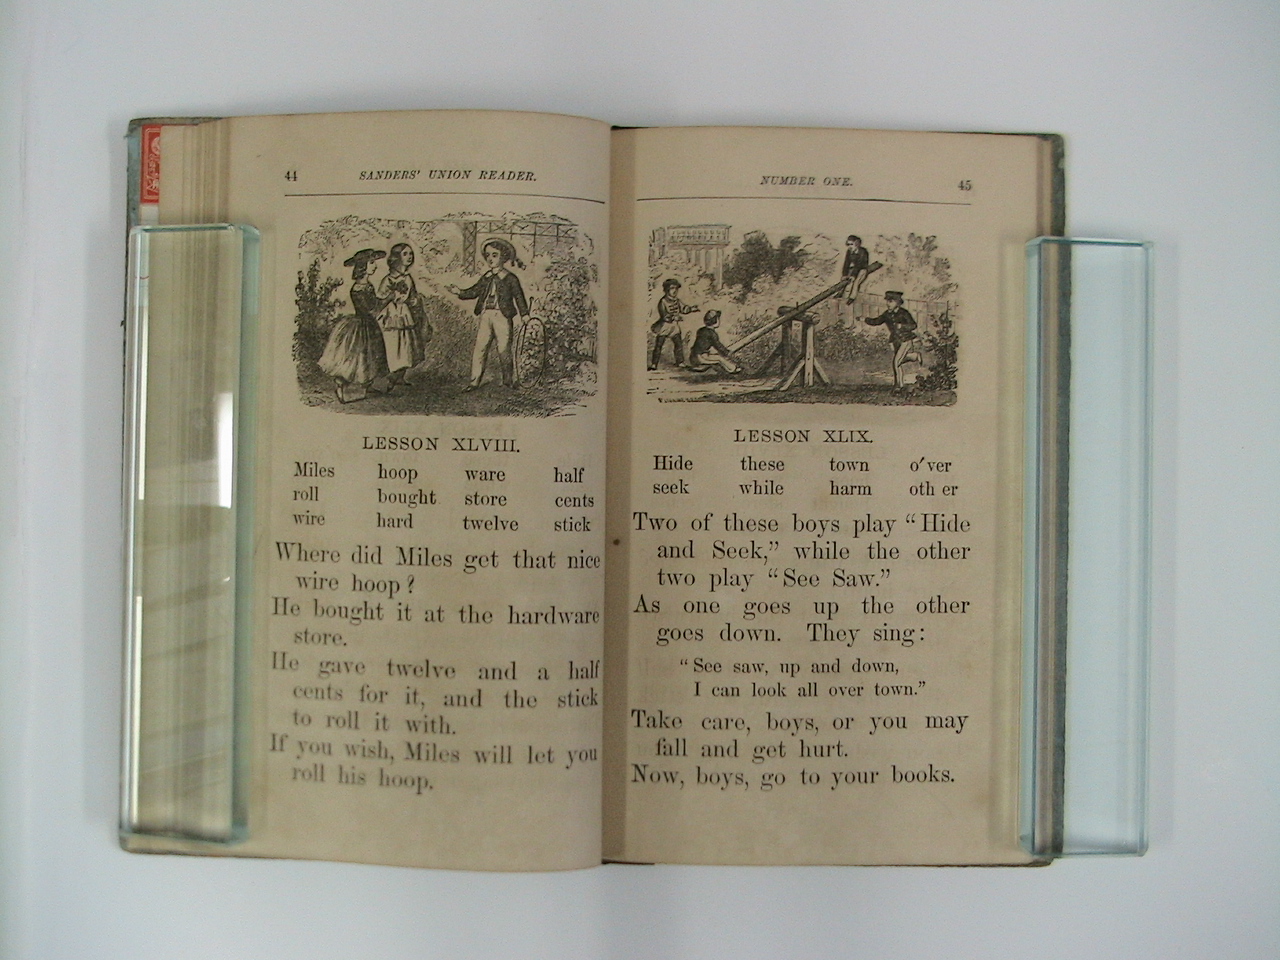 44 SANDERS' UNION READER.
LESSON XLVIII.
Miles hoop ware half
roll bought store cents
wire hard twelve stick
Where did Miles get that nice
wire hoop?
He bought it at the hardware
store.
He gave twelve and a half
cents for it, and the stick
to roll it with.
If you wish, Miles will let you
roll his hoop.
NUMBER ONE. 45
LESSON XLIX.
Hide these town o'ver
seek while harm oth er
Two of these boys play "Hide
and Seek," while the other
two play "See Saw."
As one goes up the other
goes down. They sing:
"See saw, up and down,
I can look all over town."
Take care, boys, or you may
fall and get hurt.
Now, boys, go to your books.